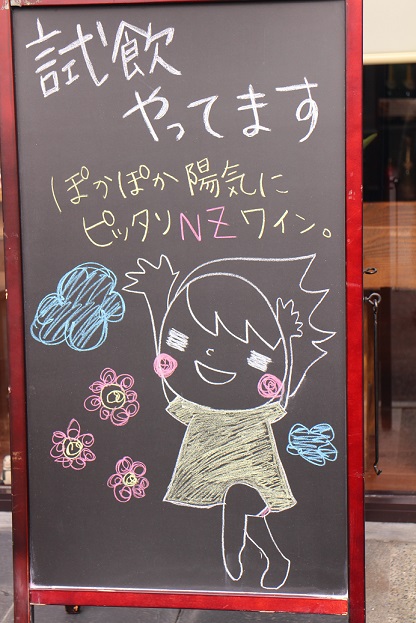 試飲
やってます
ぽかぽか陽気に
ピッタリNZワイン。